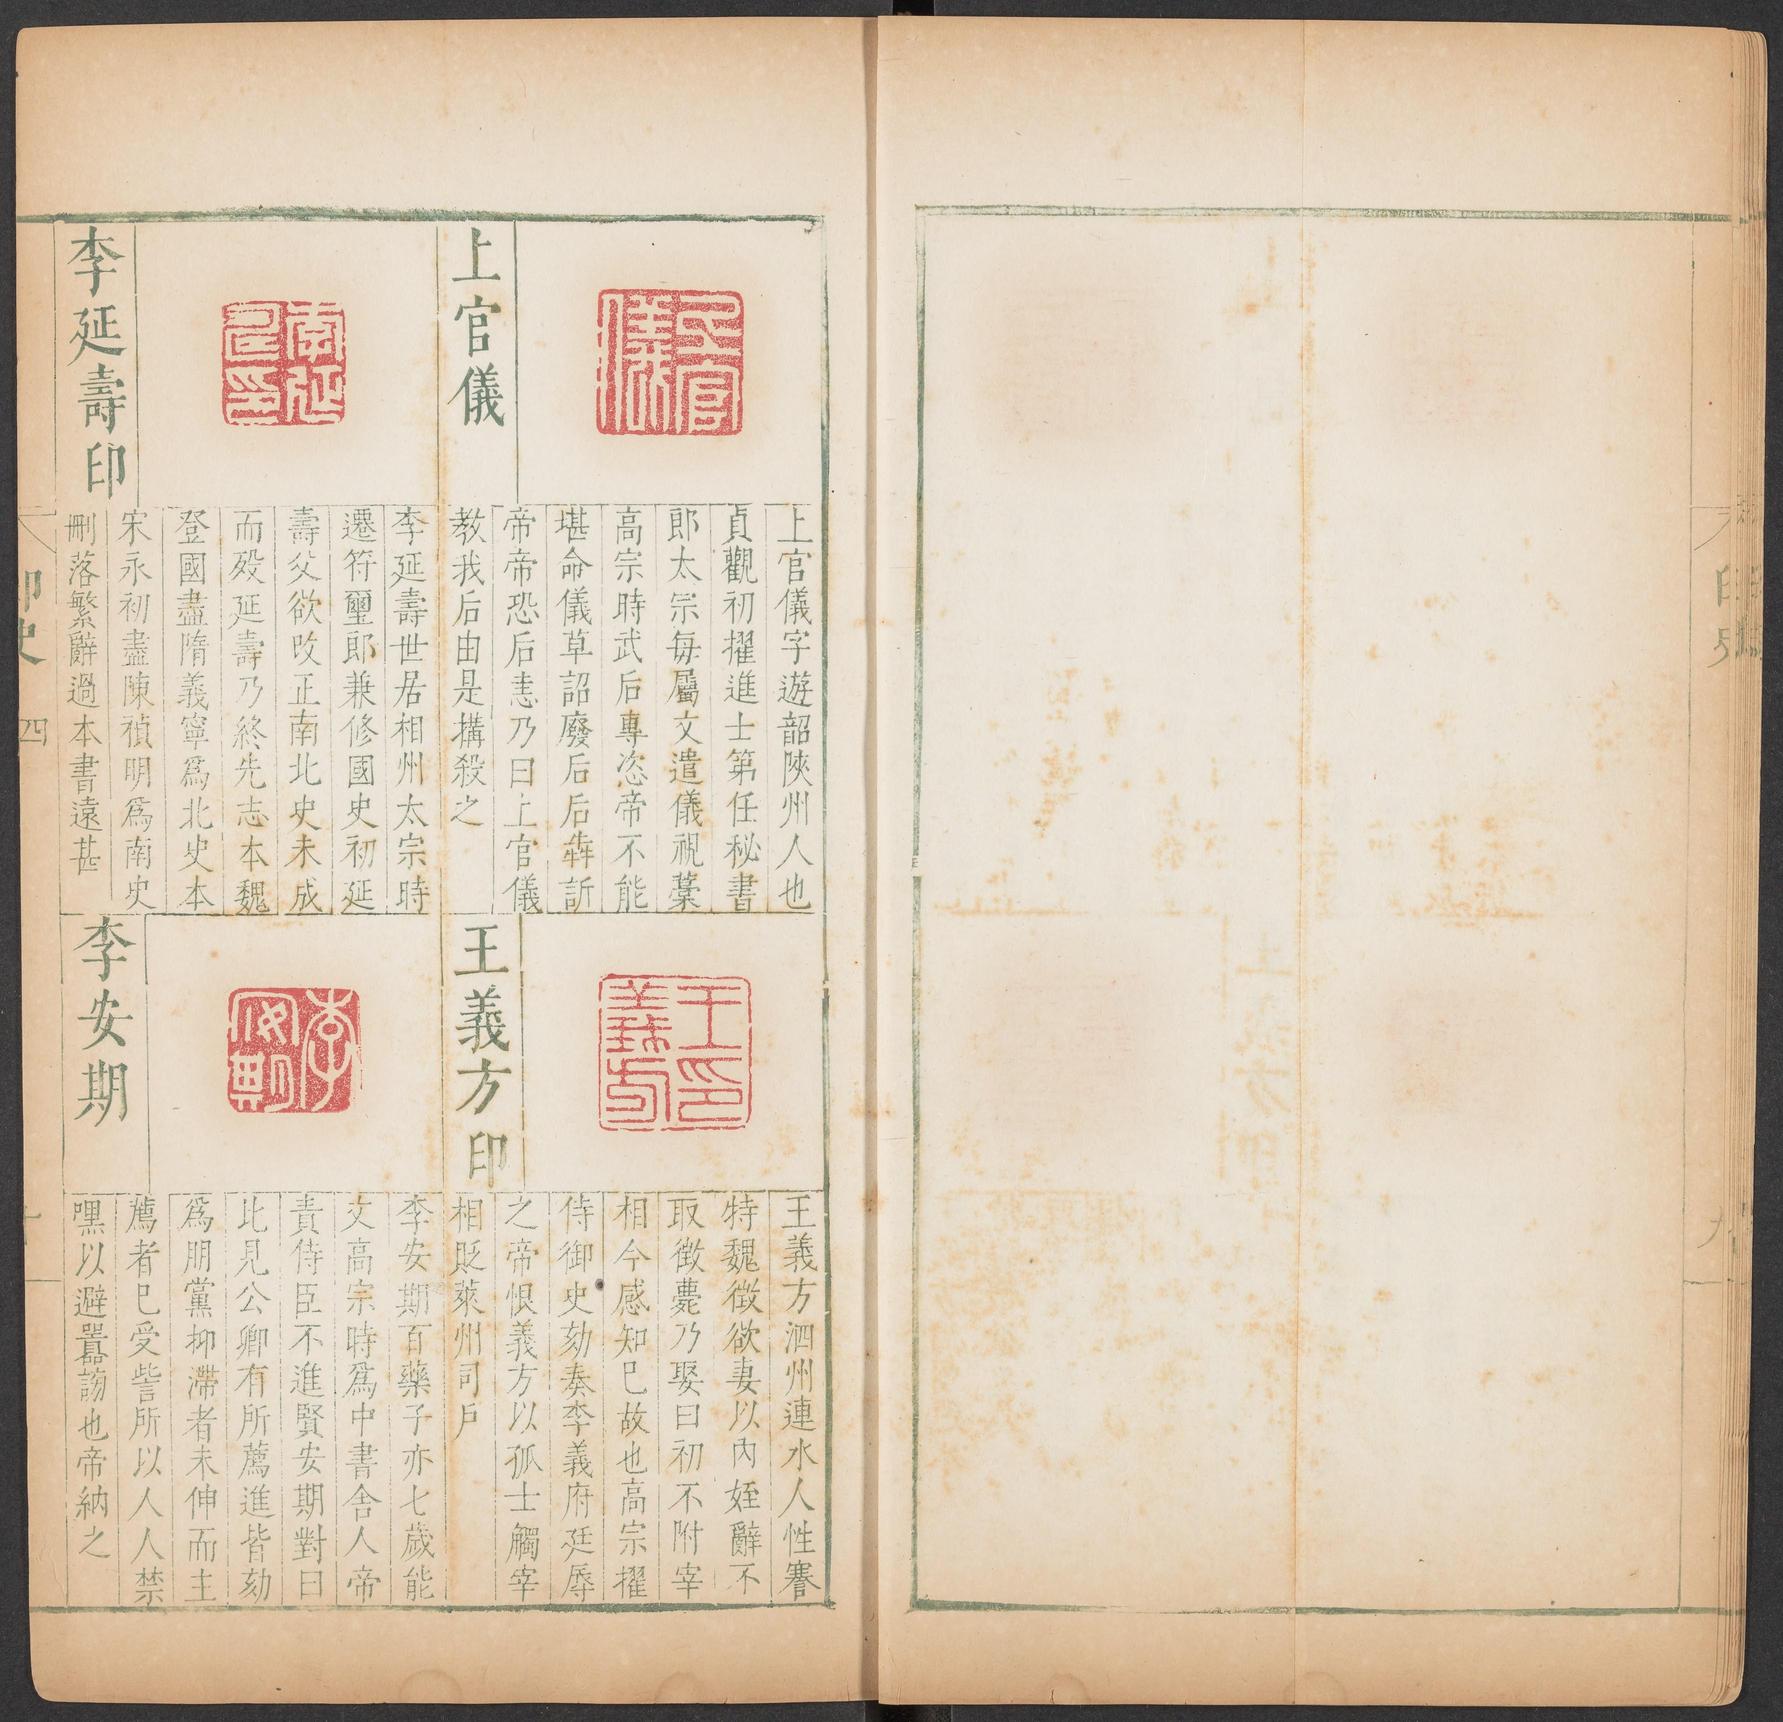 上官儀
上官儀
上官儀字遊韶陝州人也
貞觀初擢進士第任秘書
郎太宗每屬文遣儀視藁
高宗時武后專恣帝不能
堪命儀草詔廢后后犇訴
帝帝恐后恚乃曰上官儀
教我后由是搆殺之
李延壽印
李延壽世居相州太宗時
遷符璽郎兼修國史初延
壽父欲改正南北史未成
而殁延壽乃終先志本魏
登國盡隋義寧爲北史本
宋永初盡陳禎明爲南史
刪落繁辭過本書遠甚
王義方印
王義方印
王義方泗州連水人性謇
特魏徵欲妻以內姪辭不
取徵薨乃娶曰初不附宰
相今感知已故也高宗擢
侍御史劾奏李義府廷辱
之帝恨義方以孤士觸宰
相貶萊州司戶
李安期
李安期
李安期百藥子亦七歲能
文高宗時爲中書舍人帝
責侍臣不進賢安期對曰
比見公卿有所薦進皆劾
爲朋黨抑滯者未伸而主
薦者已受訾所以人人禁
嘿以避囂謗也帝納之
印史 四
十